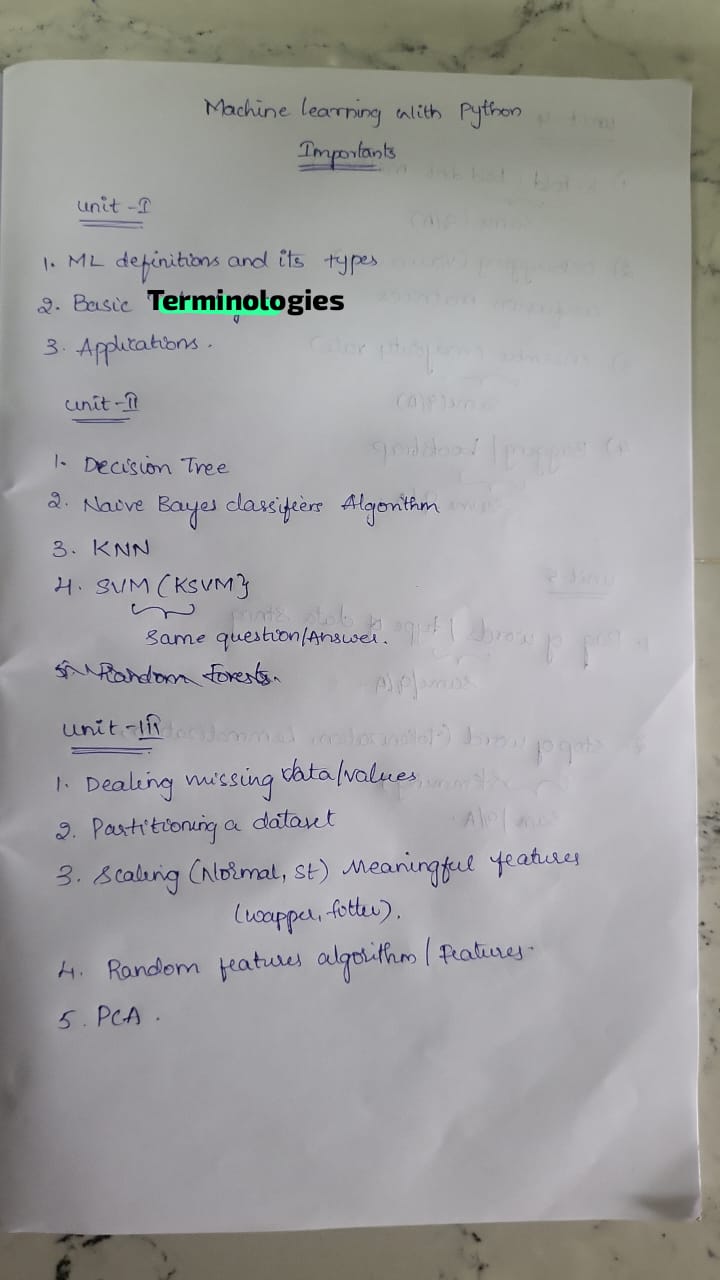 Machine learning with Python
Importants
unit - I
1. ML definitions and its types
2. Basic Terminologies
3. Applications.
unit - II
1. Decision Tree
2. Naive Bayes classifiers Algorithm
3. KNN
4. SVM (KSVM}
Same question/Answer.
5. Random forests.
unit - III
1. Dealing missing data/values
2. Partitioning a dataset
3. Scaling (Normal, St) Meaningful features
(wapper, fotter).
4. Random features algorithm / features.
5. PCA.